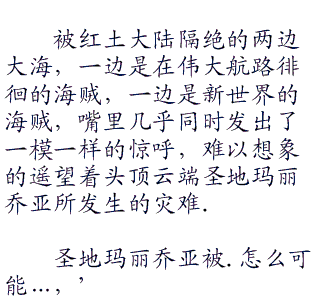 被红土大陆隔绝的两边
大海，一边是在伟大航路徘
徊的海贼，一边是新世界的
海贼，嘴里几乎同时发出了
一模一样的惊呼，难以想象
的遥望着头顶云端圣地玛丽
乔亚所发生的灾难.
圣地玛丽乔亚被.怎么可
能…，’